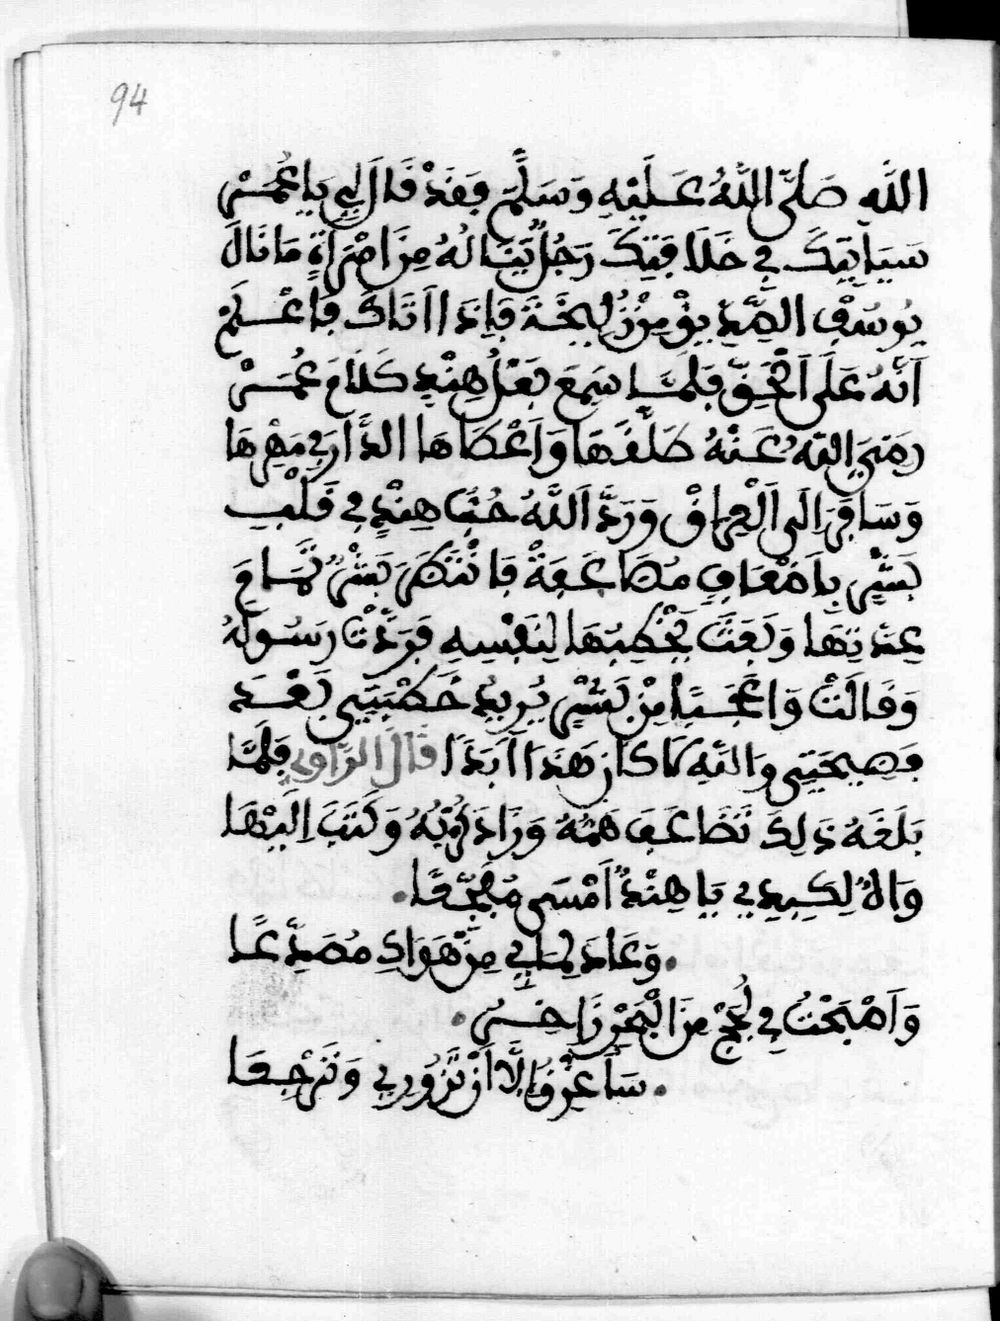 94
اللَّهِ صَلَّى اللَّهُ عَلَيْهِ وَسَلَّمَ فَقَدْ قَالَ لِي يَا عُمَرْ
سَيَأْتِيكَ فِي خَلَافَتِكَ رَجُلٌ يَنَالُهُ مِنَ امْرَأَةٍ مَا نَالَ
يُوسُفِ الصِّدِّيقْ مِنْ زُلَيْخَةَ فَإِذَا أَتَاكَ فَاعْلَمْ
أَنَّهُ عَلَى الْحَقِّ فَلَمَّا سَمِعَ بَعْلُ هِنْدٍ كَلَامَ عُمَرْ
رَضِيَ اللَّهُ عَنْهُ طَلَّقَهَا وَأَعْطَاهَا الدَّارَ فِي مَهْرِهَا
وَسَافَرَ إِلَى الْعِرَاقْ وَرَدَّ اللَّهُ حُبَّ هِنْدٍ فِي قَلْبِ
بَشْرٍ بِأَضْعَافٍ مُضَاعَفَةْ فَانْتَظَرَ بَشْرٌ تَمَامَ
عِدَّتِهَا وَبَعَثَ يَخْطِبُهَا لِنَفْسِهِ فَرَدَّتْ رَسُولَهُ
وَقَالَتْ وَاعَجَبًا مِنْ بَشْرٍ يُرِيدُ خُطْبَتِي بَعْدَ
فَضِيحَتِي وَاللَّهِ لَا كَانَ هَذَا أَبَدًا قَالَ الرَّاوِي فَلَمَّا
بَلَغَهُ ذَلِكَ تَضَاعَفَ هَمُّهُ وَزَادَ كَرْبُهُ وَكَتَبَ إِلَيْهَا
لِكِبِدِي يَا هِنْدُ أَمْسَى
وَعَادَ مِنْ هَوَاكِ مُصَدَّعًا
وَأَصْبَحْتُ فِي لُجَجْ مِنَ الْبَحْرِ زَاخِرٍ
سَأَغْرَقُ إِلَّا أَنْ تَزُورِي وَتَرْجِعَا